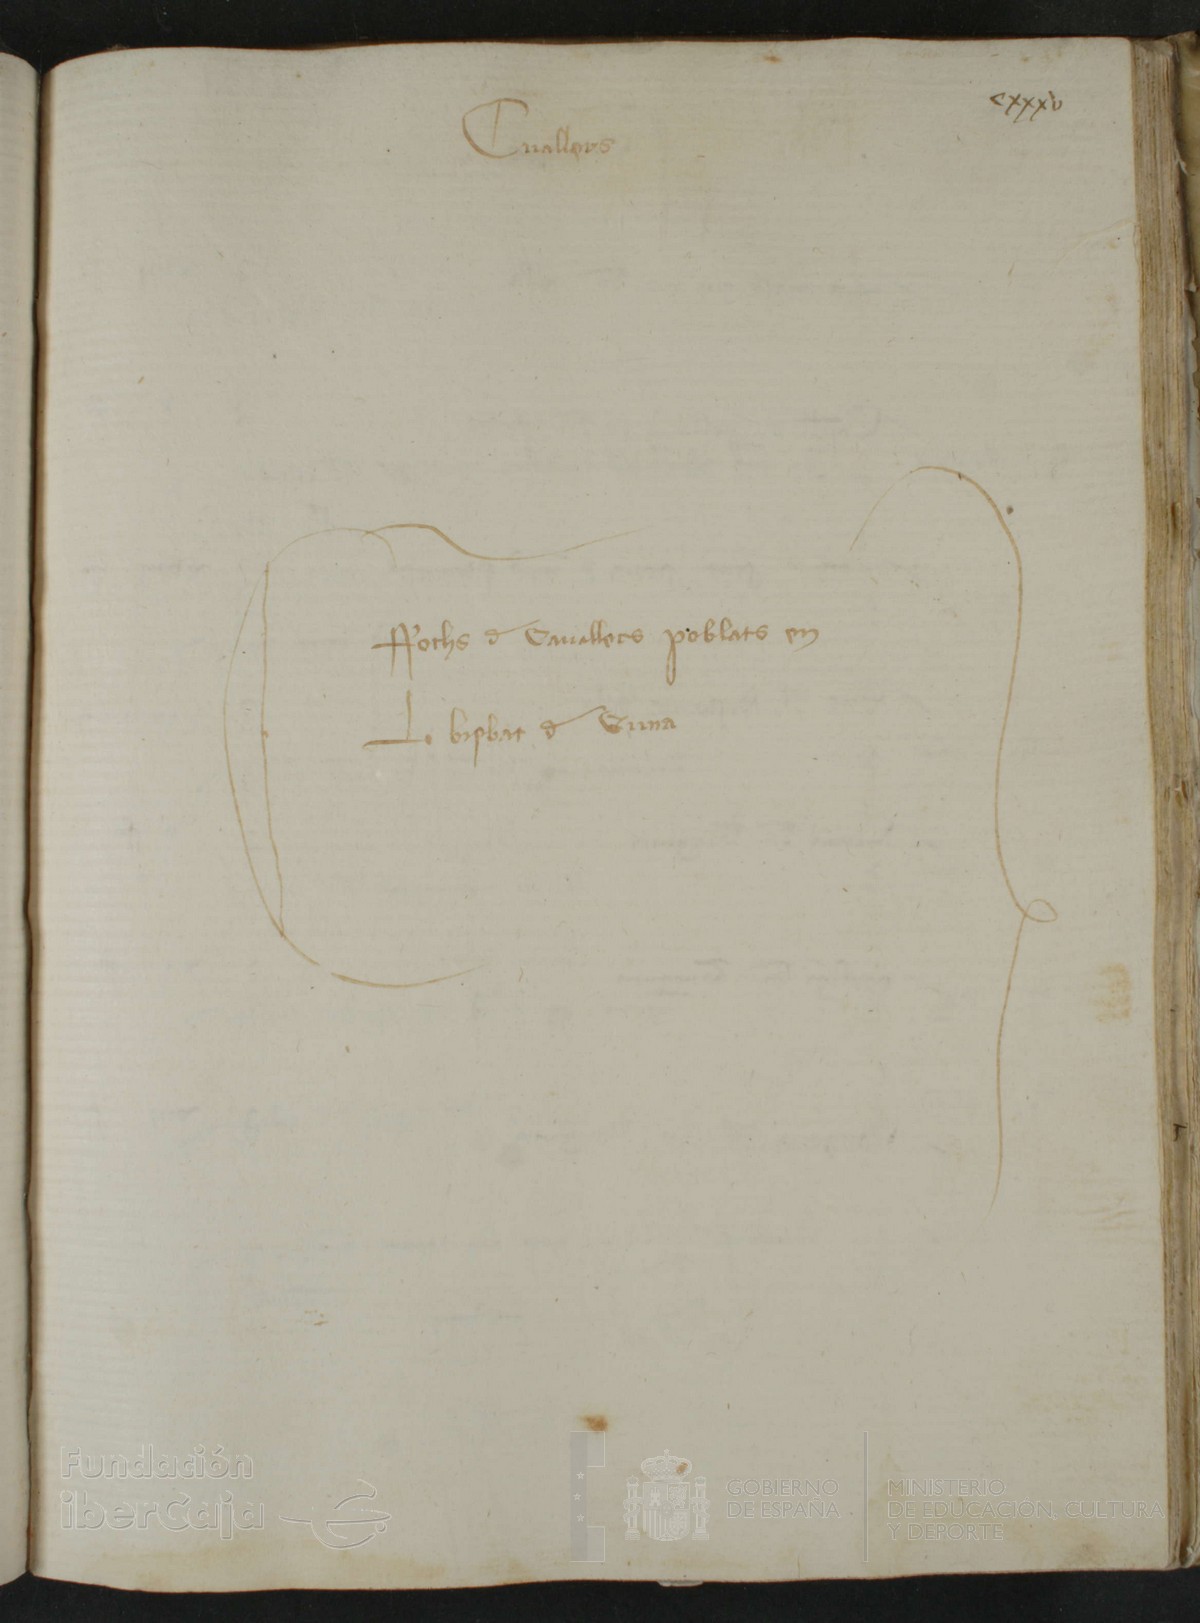 Cuallers
cxxxv
Ffochs d Cauallers poblats en
Lo bisbat d Euna
Fundación
iberCaja
GOBIERNO
DE ESPAÑA
MINISTERIO
DE EDUCACIÓN, CULTURA
Y DEPORTE